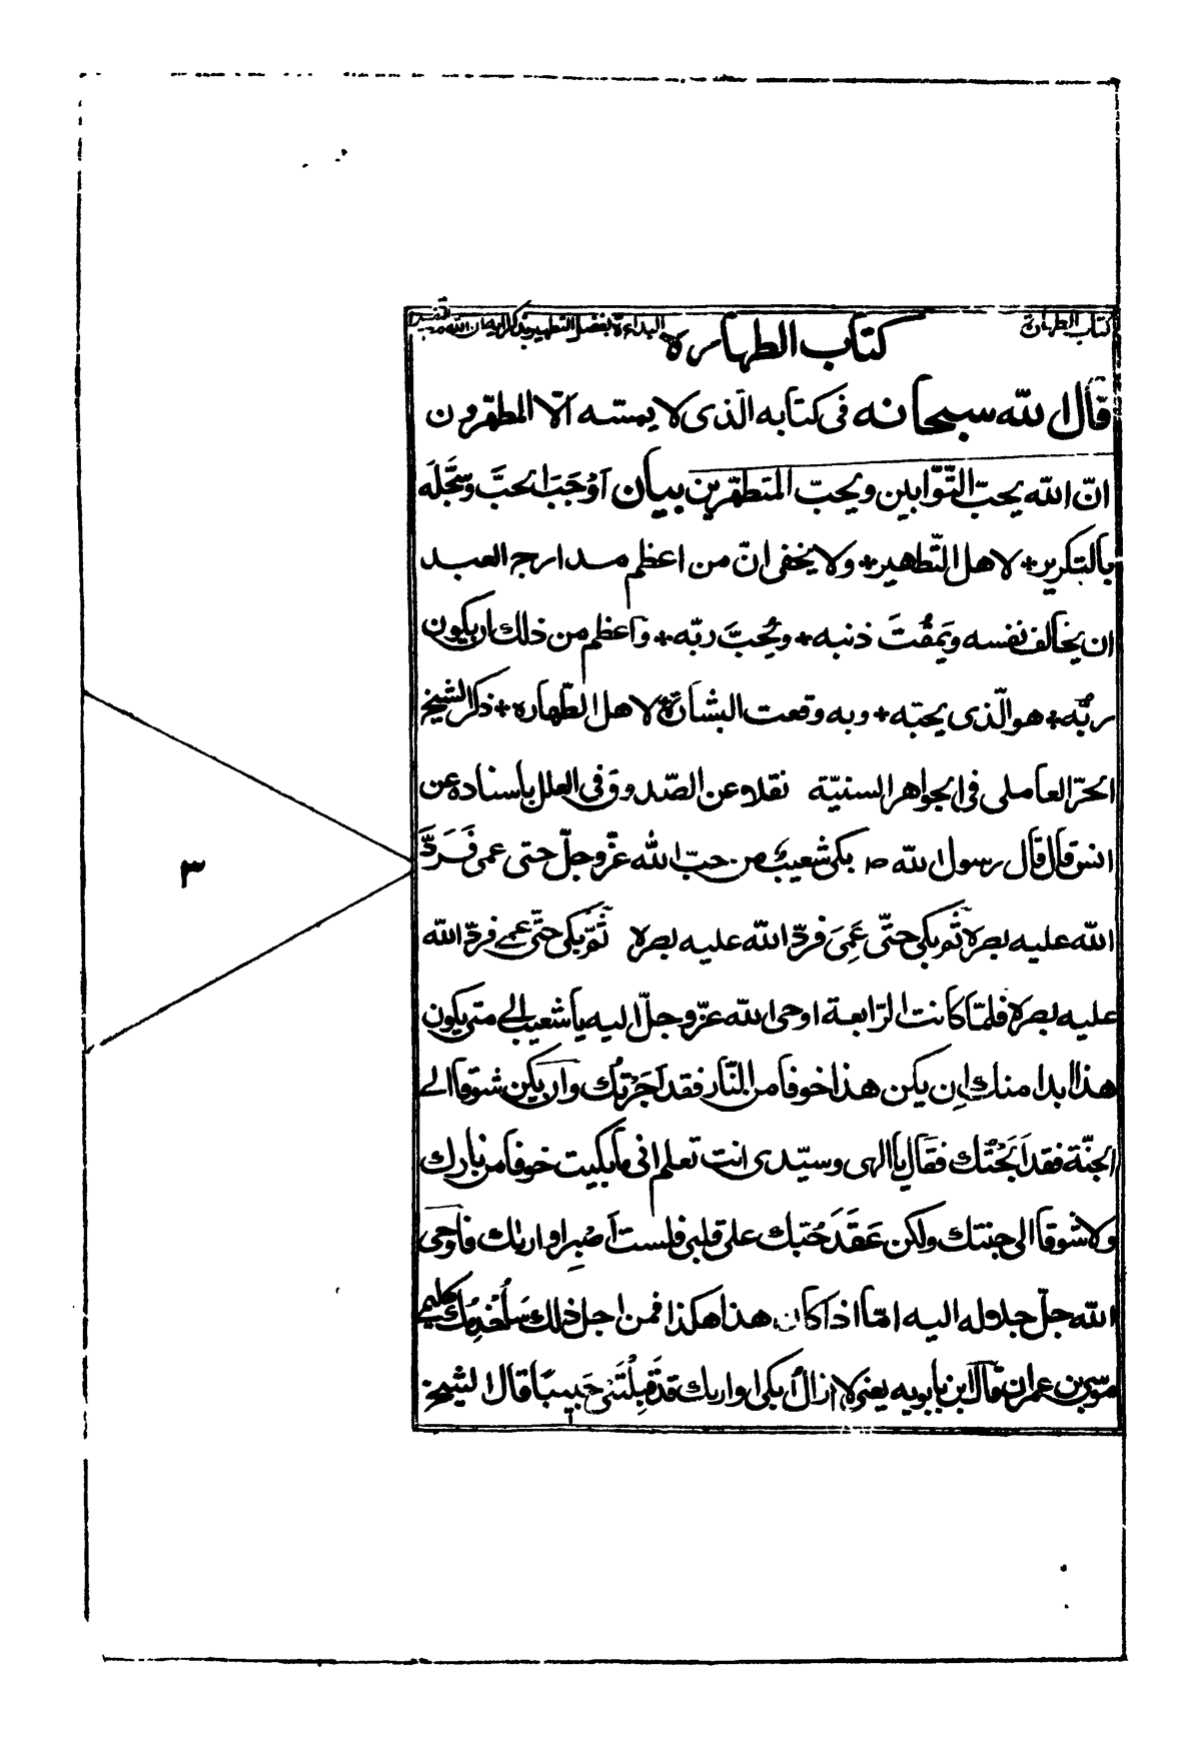 كتاب الطهارة
كتاب الطهارة
البداءة بفضل التطهير بذكر آية ان الله يحب
قال الله سبحانه فى كتابه الّذى لا يمسّه الّا المطهّرون
انّ الله يحبّ التّوّابين ويحبّ المتطهّرين بيان اَوْجَبَ الحبَّ وسَجَّلَه
بالتكرير + لاهل التّطهير + ولا يخفى انّ من اعظم مدارج العبد
ان يخالف نفسه ويَمقُتَ ذنبه + ويُحِبَّ ربّه + واعظم من ذلك ان يكون
ربُّه + هو الّذى يحبّه + وبه وقعت البشارة لاهل الطّهاره + ذكر الشيخ
الحرّ العاملى فى الجواهر السنيّة نقلا عن الصّدوق فى العلل باسناده عن
انس قال قال رسول الله ص بكى شعيب من حبّ الله عزّ وجلّ حتى عمى فَرَدَّ
الله عليه بصره ثُم بكى حتّى عَمِىَ فردّ الله عليه بصره ثُمّ بكى حتّى عمى فردّ الله
عليه بصره فلمّا كانت الرّابعة اوحى الله عزّ وجلّ اليه يا شعيب الى متى يكون
هذا ابدا منك اِن يكن هذا خوفا من النّار فقد اَجَرْتُك وان يكن شوقا الى
الجنّة فقد اَبَحْتُك فقال يا الهى وسيّدى انت تعلم انى ما بكيت خوفا من نارك
ولا شوقا الى جنتك ولكن عَقَدَ حُبّك على قلبى فلست اَصْبِر او اراك فاوحى
الله جلّ جلاله اليه امّا اذا كان هذا هكذا فمن اجل ذلك سَاُخْدِمُك كليمى
موسى بن عمران قال ابن بابويه يعنى لا ازال اَبكى او اراك قد قَبِلْتَنى حَبيبًا قال الشيخ
٣